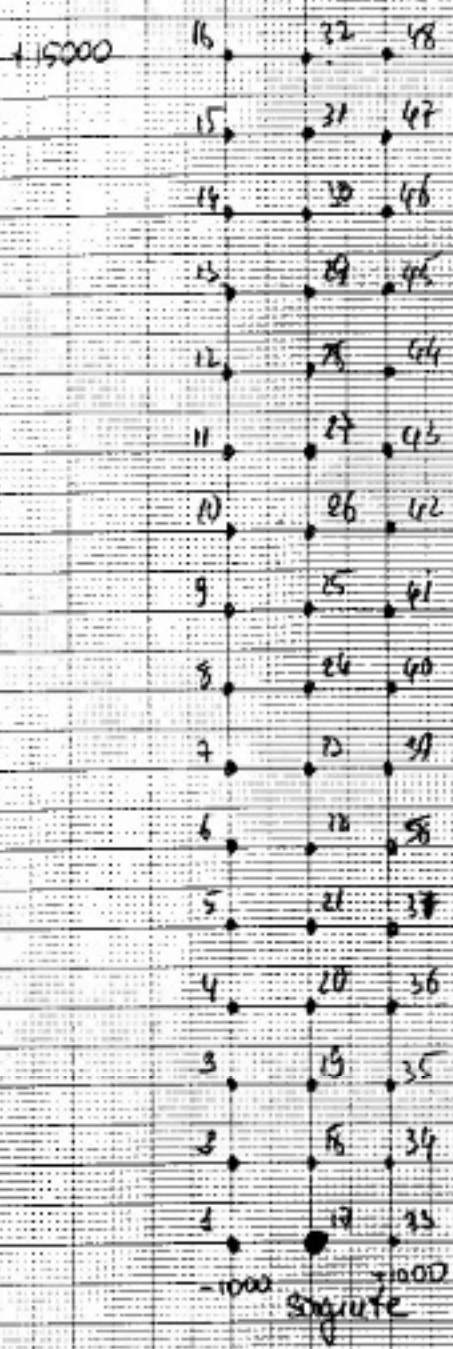 +15000 16 32 48
15 31 47
14 30 46
13 29 45
12 28 44
11 27 43
10 26 42
9 25 41
8 24 40
7 23 39
6 22 38
5 21 37
4 20 36
3 19 35
2 18 34
1 17 33
-1000 +1000